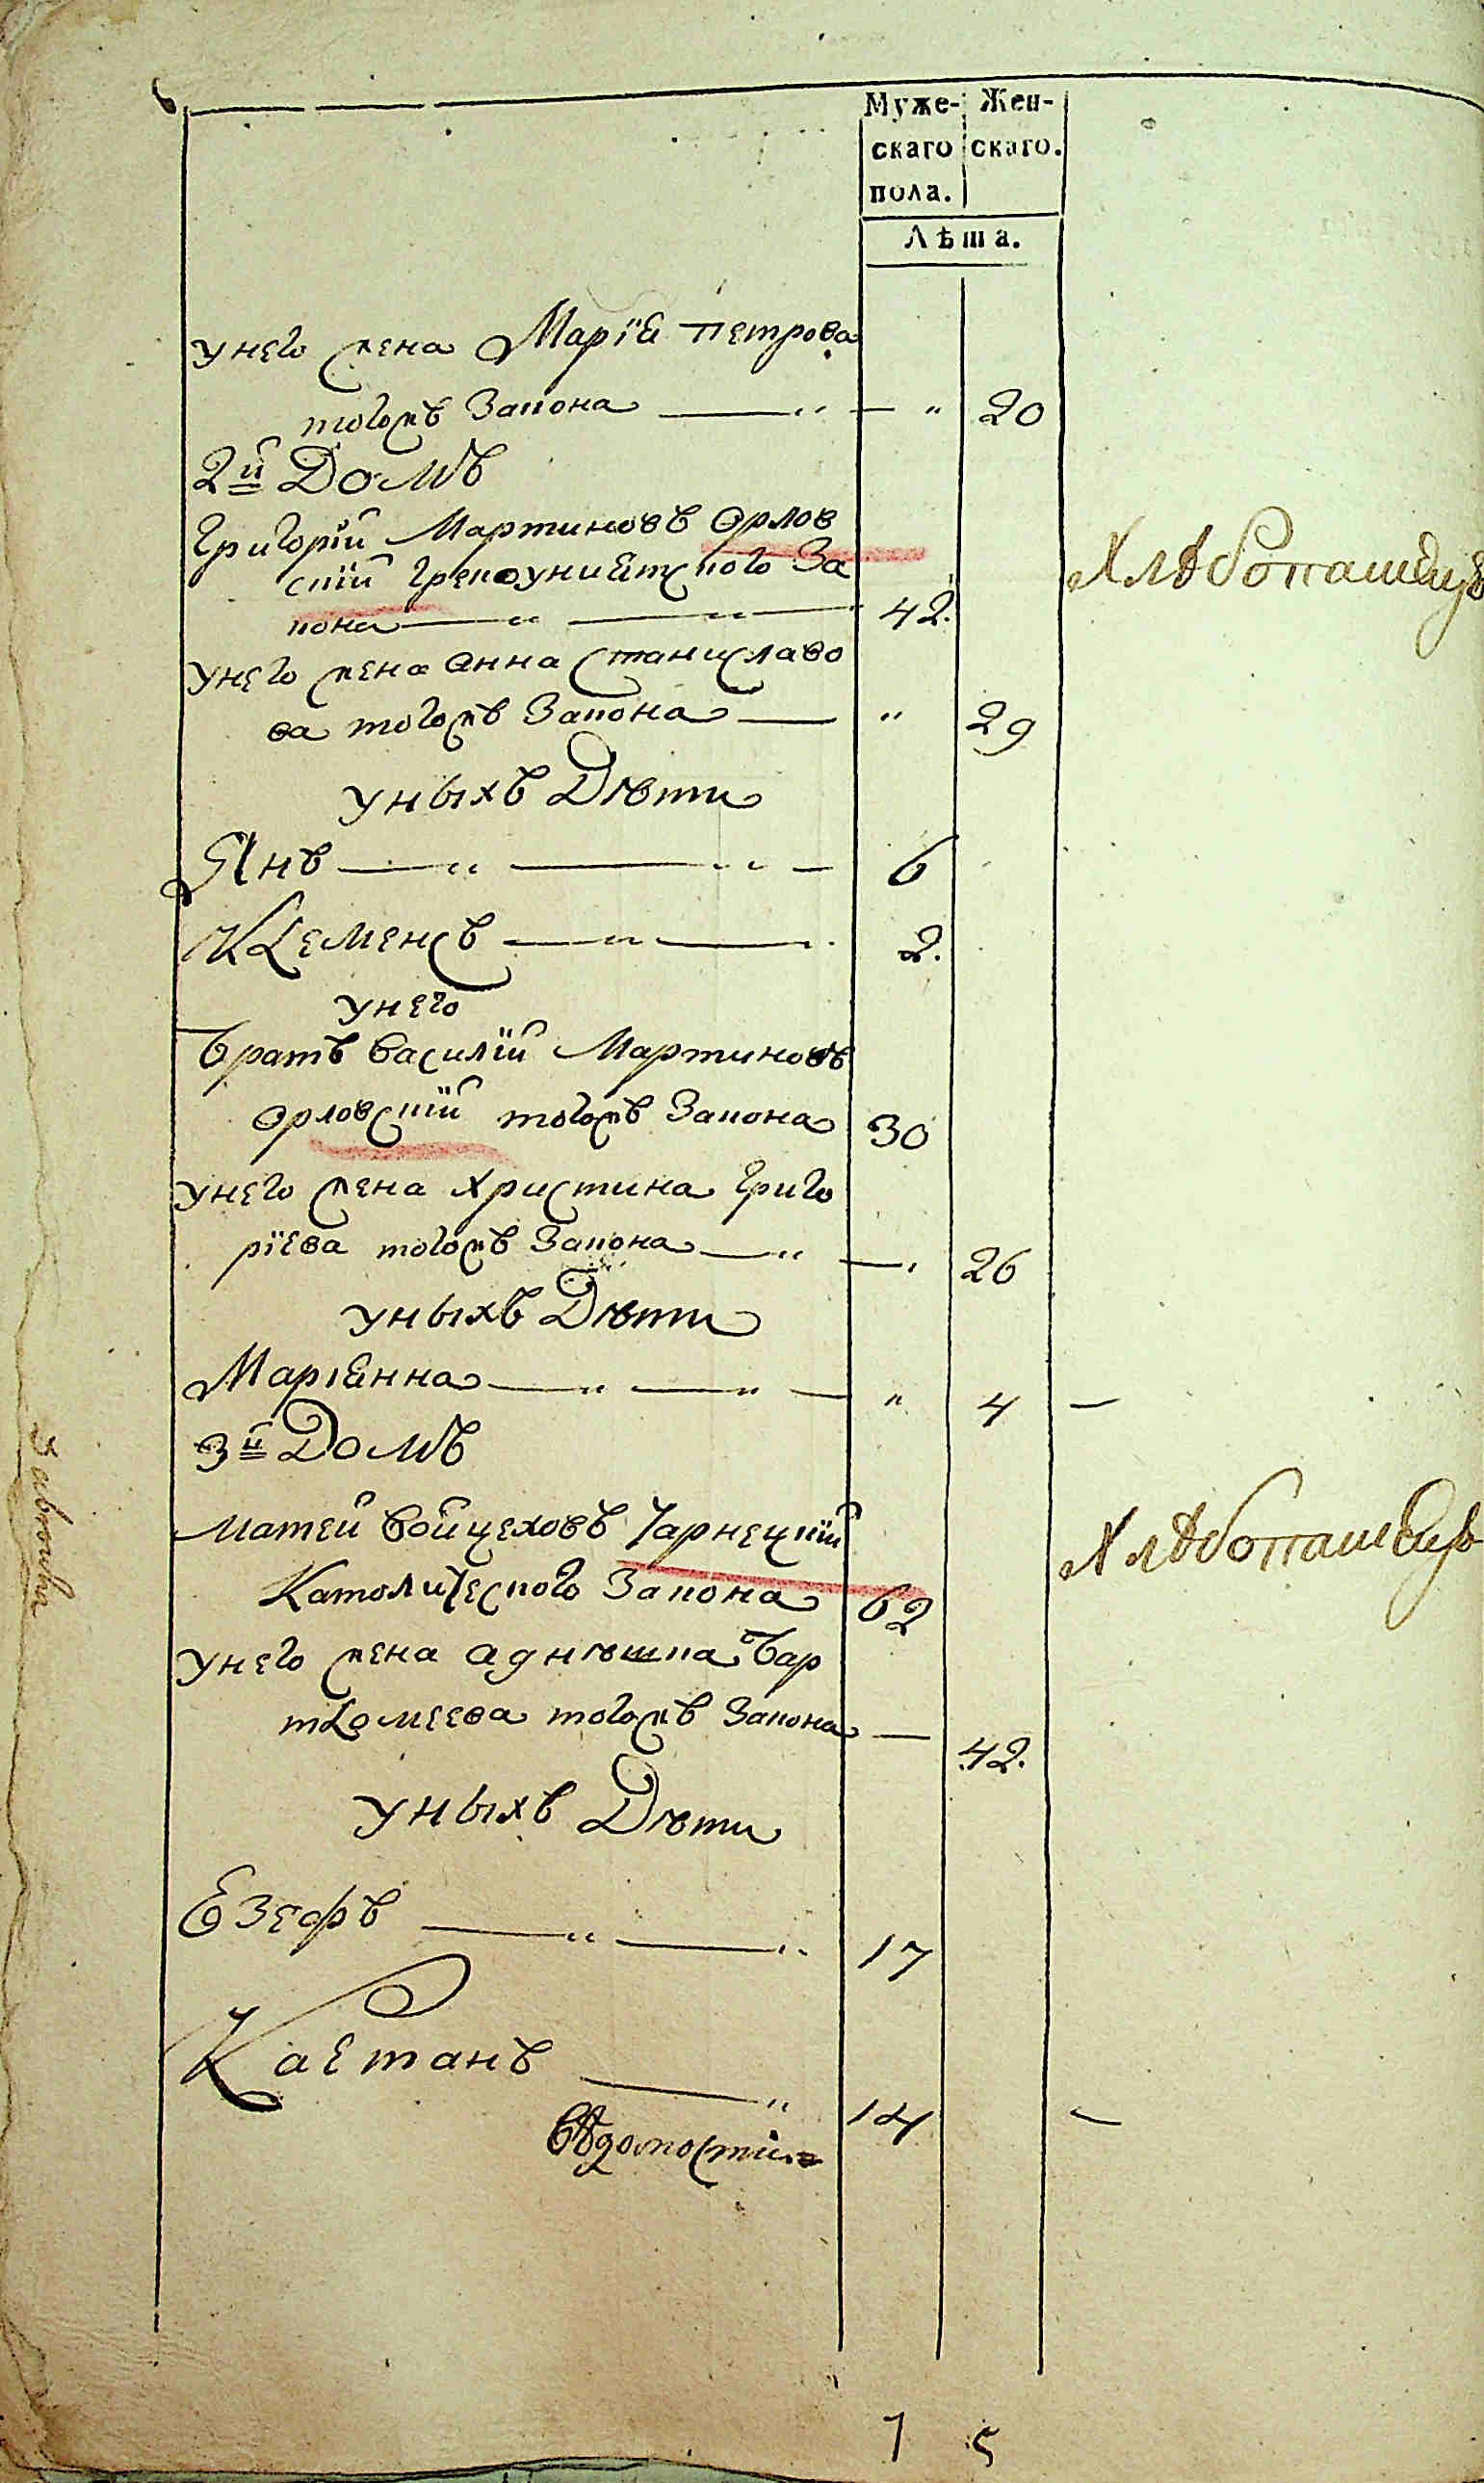 Муже- Жен-
скаго скаго.
пола.
Лѣта.
унего жена Марїя петрова
тогожъ Закона — " — " 20
2й Домъ
Григорїй Мартиновъ Орлов
скїй грекоуниятского За
кона — " — " — 42.
Хлѣбопашецъ
унего жена Анна Станиславо
ва тогожъ Закона — " 29
уныхъ Дѣти
Янъ — " — " — 6
Клеменсъ — " — 2.
унего
братъ Василїй Мартиновъ
Орловскїй тогожъ Закона 30
унего жена Христина Григо
рїева тогожъ Закона — " — 26
уныхъ Дѣти
Марїянна — " — " — " 4 —
3й Домъ
Матей Войцеховъ Чарнецкїй
Хлѣбопашецъ
Католического Закона 62
унего жена Агнѣшка Бар
тломеева тогожъ Закона — 42.
уныхъ Дѣти
Езефъ — " — " 17
Каетанъ — " 14 —
Вѣдомости
7 5